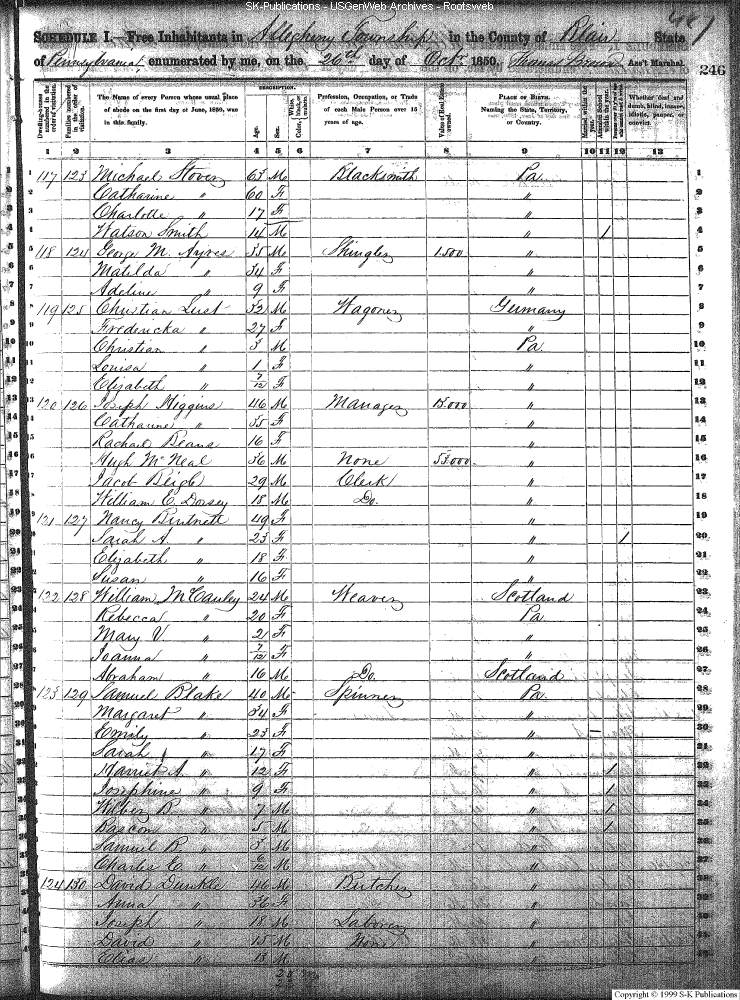 SK-Publications - USGenWeb Archives - Rootsweb
SCHEDULE I.—Free Inhabitants in Allegheny Township in the County of Blair State
of Pennsylvania, enumerated by me, on the 26th day of Octr 1850. Thomas Ass't Marshal.
246
Dwelling-houses numbered in the order of visitation.
Families numbered in the order of visitation.
The Name of every Person whose usual place of abode on the first day of June, 1850, was in this family.
DESCRIPTION.
Age.
Sex.
White, Color black, or mulatto.
Profession, Occupation, or Trade of each Male Person over 15 years of age.
Value of Real Estate owned.
PLACE OF BIRTH. Naming the State, Territory, or Country.
Married within the year.
Attended School within the year.
Whether deaf and dumb, blind, insane, idiotic, pauper, or convict.
1 2 3 4 5 6 7 8 9 10 11 12 13
1 117 123 Michael Stover 63 M Blacksmith Pa 1
2 Catharine " 60 F " 2
3 Charlotte " 17 F " 3
4 Watson Smith 14 M " 1 4
5 118 124 George M. Ayres 35 M Shingler 1.500 " 5
6 Matilda " 34 F " 6
7 Adeline " 9 F " 7
8 119 125 Christian List 52 M Wagoner Germany 8
9 Fredericka " 27 F " 9
10 Christian " 3 M Pa 10
11 Louisa " 1 F " 11
12 Elizabeth " 7/12 F " 12
13 120 126 Joseph Higgins 46 M Manager 15.000 " 13
14 Catharine " 35 F " 14
15 Rachael Beans 16 F " 15
16 Hugh McNeal 36 M None 53.000 " 16
17 Jacob Beigh 29 M Clerk " 17
18 William C. Dorsey 18 M Do. " 18
19 121 127 Nancy 49 F " 19
20 Sarah A. " 23 F " 1 20
21 Elizabeth " 18 F " 21
22 Susan " 16 F " 22
23 122 128 William McCauley 24 M Weaver Scotland 23
24 Rebecca " 20 F Pa 24
25 Mary V. " 2 F " 25
26 Joanna " 7/12 F " 26
27 Abraham " 16 M Do. Scotland 27
28 123 129 Samuel Blake 40 M Spinner Pa 28
29 Margaret " 34 F " 29
30 Emily " 23 F " 30
Sarah " 17 F "
Harriet A. " 12 F " 1
Josephine " 9 F " 1
Wilber B. " 7 M " 1
Bascom " 5 M " 1
Samuel B. " 3 M "
Charles E. " 6/12 M "
124 130 David Dunkle 46 M Butcher "
Anna " 36 F "
Joseph " 18 M Laborer "
David " 15 M None "
Elias " 13 M "
Copyright © 1999 S-K Publications